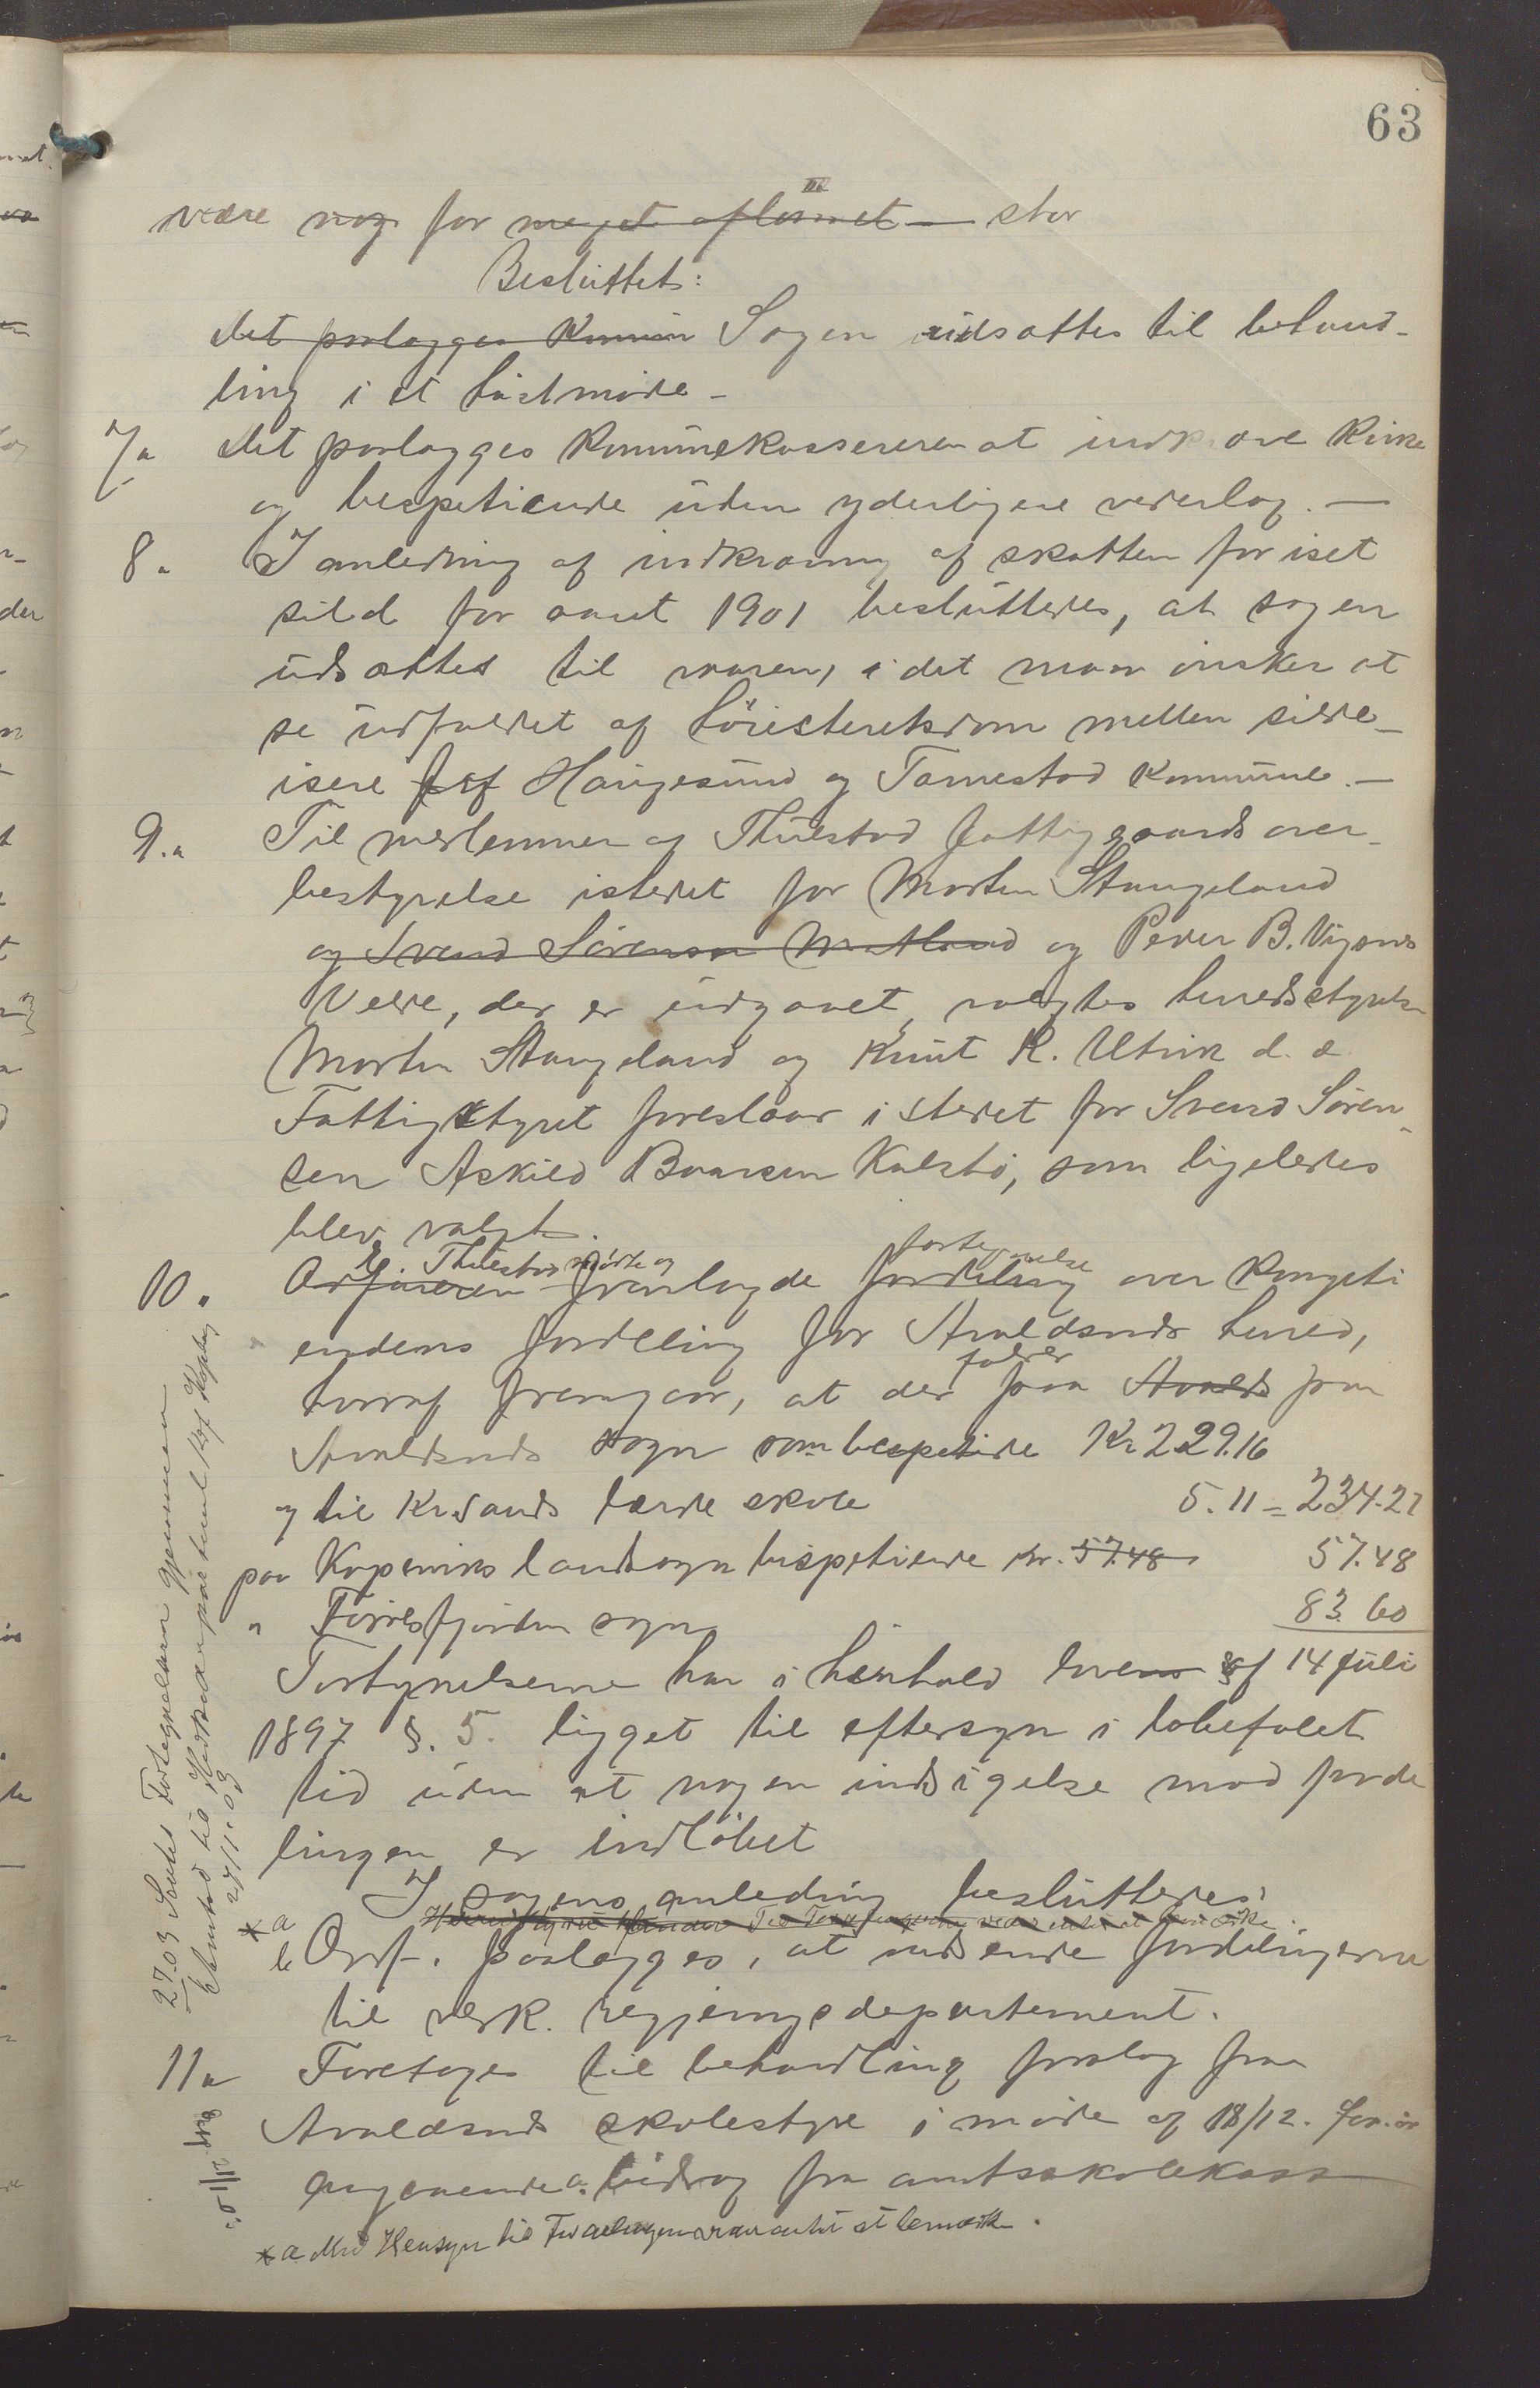 63
være nog for meget aflønnet — stor
Besluttet:
Det paalægges Kommun Sagen udsættes til behand-
ling i et høstmøde –
7/a Det paalægges Kommunekassereren at indkræve Kirke
og bespetiende uden yderligere vederlag. —
8. I anledning af indkrævning af skatten for iset
sild for aaret 1901 besluttedes, at sagen
udsættes til vaaren, idet man ønsker at
se udfaldet af höiesteretsdom mellem silde-
isere Haugesund og Torvestad Kommune. —
9. Til medlemmer af Thuestad fattiggaards over-
bestyrelse istedet for Morten Stangeland
og Svend Sörensen Matland og Peder B. Vigsnes
Velde, der er udgaaet, valgtes herredsstyrets
Morten Stangeland og Knut K. Utvik d. æ.
Fattigstyret foreslaar istedet for Svend Sören-
sen Askild Baarsen Kalstö, som ligeledes
blev valgt.
E. Thuestad mødte og fortegnelse
10. Ordføreren fremlagde fordeling over Kongeti
endens fordeling for Avaldsnds herred,
hvoraf fremgaar, at der falder paa Avalds paa
Avaldsnds sogn som bespetiende Kr 229.16
og til Kr.sands lærde skole 5.11 = 234.27
paa Kopervik landsogn bispetiende kr. 57.48 57.48
" Förresfjorden sogn 83.60
Fortegnelserne har i henhold loven af 14 juli
1897 §. 5. ligget til eftersyn i lobefalet
tid uden at nogen indsigelse mod forde
lingen er indløbet
I sagens anledning besluttedes:
* a
b Ordf. paalægges, at indsende fordelingerne
til vedk. regjeringsdepartement.
11a Foretages til behandling forslag fra
Avaldsnds skolestyre i møde af 18/12. for. aar
angaaende a. bidrag fra amtsskolekassen
* a Med Hensyn til Fordelingen var intet at bemærke.
27.03 Sendt Fortegnelsen gjennem
27/11.03